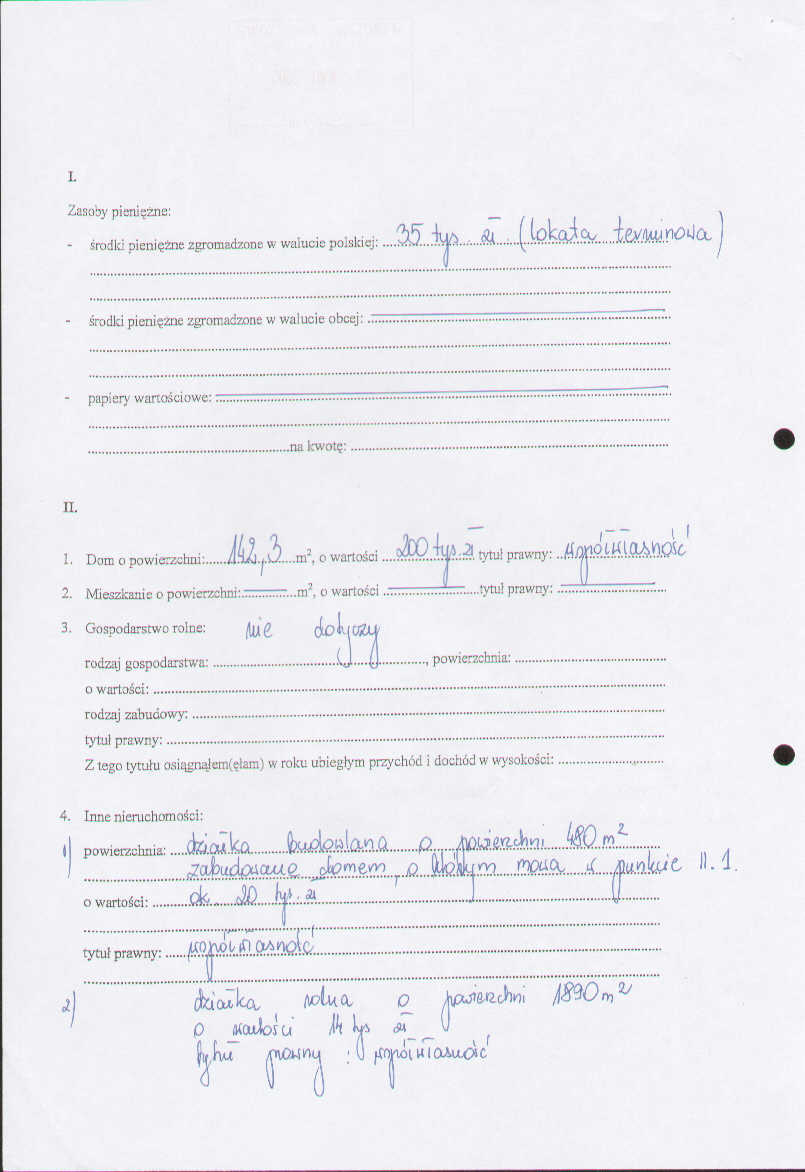 I.
Zasoby pieniężne:
- środki pieniężne zgromadzone w walucie polskiej: 35 tys. zł (lokata terminowa)
- środki pieniężne zgromadzone w walucie obcej:
- papiery wartościowe:
na kwotę:
II.
1. Dom o powierzchni: 142,3 m², o wartości 200 tys. zł tytuł prawny: współwłasność
2. Mieszkanie o powierzchni: m², o wartości tytuł prawny:
3. Gospodarstwo rolne: nie dotyczy
rodzaj gospodarstwa: , powierzchnia:
o wartości:
rodzaj zabudowy:
tytuł prawny:
Z tego tytułu osiągnąłem(ęłam) w roku ubiegłym przychód i dochód w wysokości:
4. Inne nieruchomości:
1) powierzchnia: działka budowlana o powierzchni 480 m²
zabudowana domem, o którym mowa w punkcie II.1.
o wartości: ok. 20 tys. zł
tytuł prawny: współwłasność
2) działka rolna o powierzchni 1890 m²
o wartości 14 tys zł
tytuł prawny : współwłasność